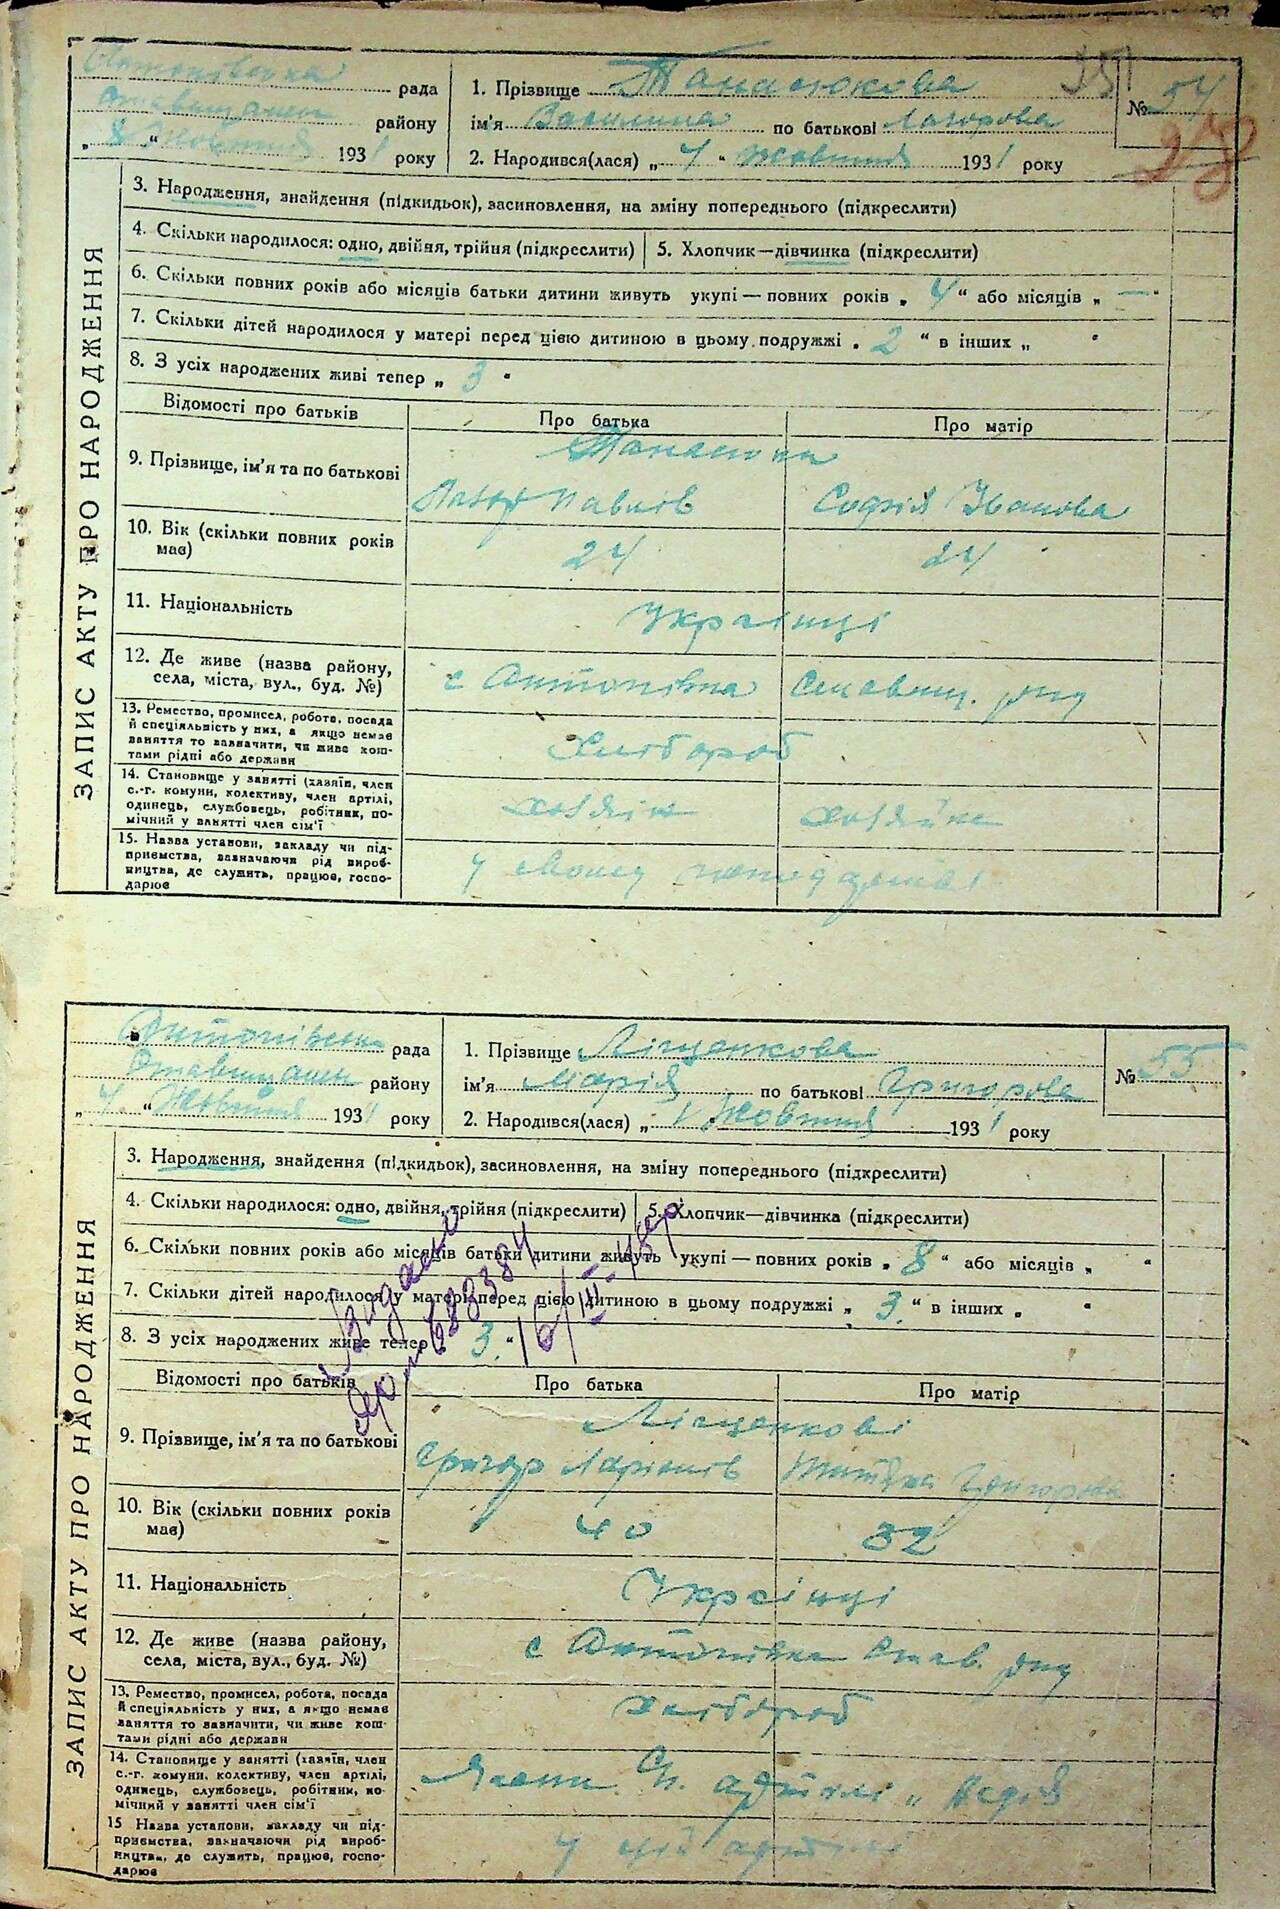 Антонівська рада
Ставищанськ району
„ 8 “ Жовтня 1931 року
1. Прізвище Танасюкова
ім'я Василина по батькові Лазорова
2. Народився(лася) „ 4 “ Жовтня 1931 року
№ 54
28
ЗАПИС АКТУ ПРО НАРОДЖЕННЯ
3. Народження, знайдення (підкидьок), засиновлення, на зміну попереднього (підкреслити)
4. Скільки народилося: одно, двійня, трійня (підкреслити) 5. Хлопчик—дівчинка (підкреслити)
6. Скільки повних років або місяців батьки дитини живуть укупі — повних років „ 4 “ або місяців „ — “
7. Скільки дітей народилося у матері перед цією дитиною в цьому подружжі „ 2 “ в інших „ “
8. З усіх народжених живі тепер „ 3 “
Відомості про батьків Про батька Про матір
9. Прізвище, ім'я та по батькові
Лазор Павлів Софія Іванова
10. Вік (скільки повних років має) 24 24
11. Національність Українці
12. Де живе (назва району, села, міста, вул., буд. №) с Антонівка Ставищ. р-ну
13. Ремество, промисел, робота, посада
й спеціяльність у них, а якщо немає
заняття то зазначити, чи живе кош-
тами рідні або держави
Хлібороб
14. Становище у занятті (хазяїн, член
с.-г. комуни, колективу, член артілі,
одинець, службовець, робітник, по-
мічний у занятті член сім'ї
хозяїн хозяйка
15. Назва установи, закладу чи під-
приємства, зазначаючи рід вироб-
ництва, де служить, працює, госпо-
дарює
у своєму
Антонівськ рада
Ставищанськ району
„ 4 “ Жовтня 1931 року
1. Прізвище Ліщенкова
ім'я Марія по батькові Григорова
2. Народився(лася) „ 1 Жовтня 1931 року
№ 55
ЗАПИС АКТУ ПРО НАРОДЖЕННЯ
3. Народження, знайдення (підкидьок), засиновлення, на зміну попереднього (підкреслити)
4. Скільки народилося: одно, двійня, трійня (підкреслити) 5. Хлопчик—дівчинка (підкреслити)
6. Скільки повних років або місяців батьки дитини живуть укупі — повних років „ 8 “ або місяців „ “
7. Скільки дітей народилося у матері перед цією дитиною в цьому подружжі „ 3. “ в інших „ “
8. З усіх народжених живе тепер „ 3. “
16/III-45р
Відомості про батьків Про батька Про матір
9. Прізвище, ім'я та по батькові Ліщенкові
Григор Ларіонів Григорова
10. Вік (скільки повних років має) 40 32
11. Національність Українці
12. Де живе (назва району, села, міста, вул., буд. №) с Антонівка Став. р-ну
13. Ремество, промисел, робота, посада
й спеціяльність у них, а якщо немає
заняття то зазначити, чи живе кош-
тами рідні або держави
хлібороб
14. Становище у занятті (хазяїн, член
с.-г. комуни, колективу, член артілі,
одинець, службовець, робітник, по-
мічний у занятті член сім'ї
Члени артілі „ Надія
15 Назва установи, закладу чи під-
приємства, зазначаючи рід вироб-
ництва, де служить, працює, госпо-
дарює
у цій артілі